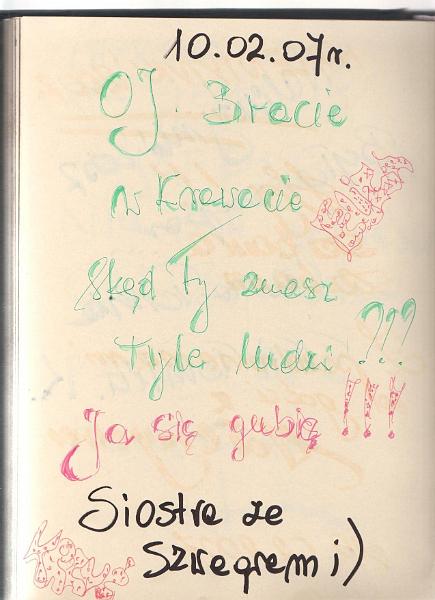 10.02.07r.
OJ. Bracie
w Krawacie
skąd Ty znasz
tyle ludzi ???
Ja się gubię !!!
Siostra ze
Szwagrem i)